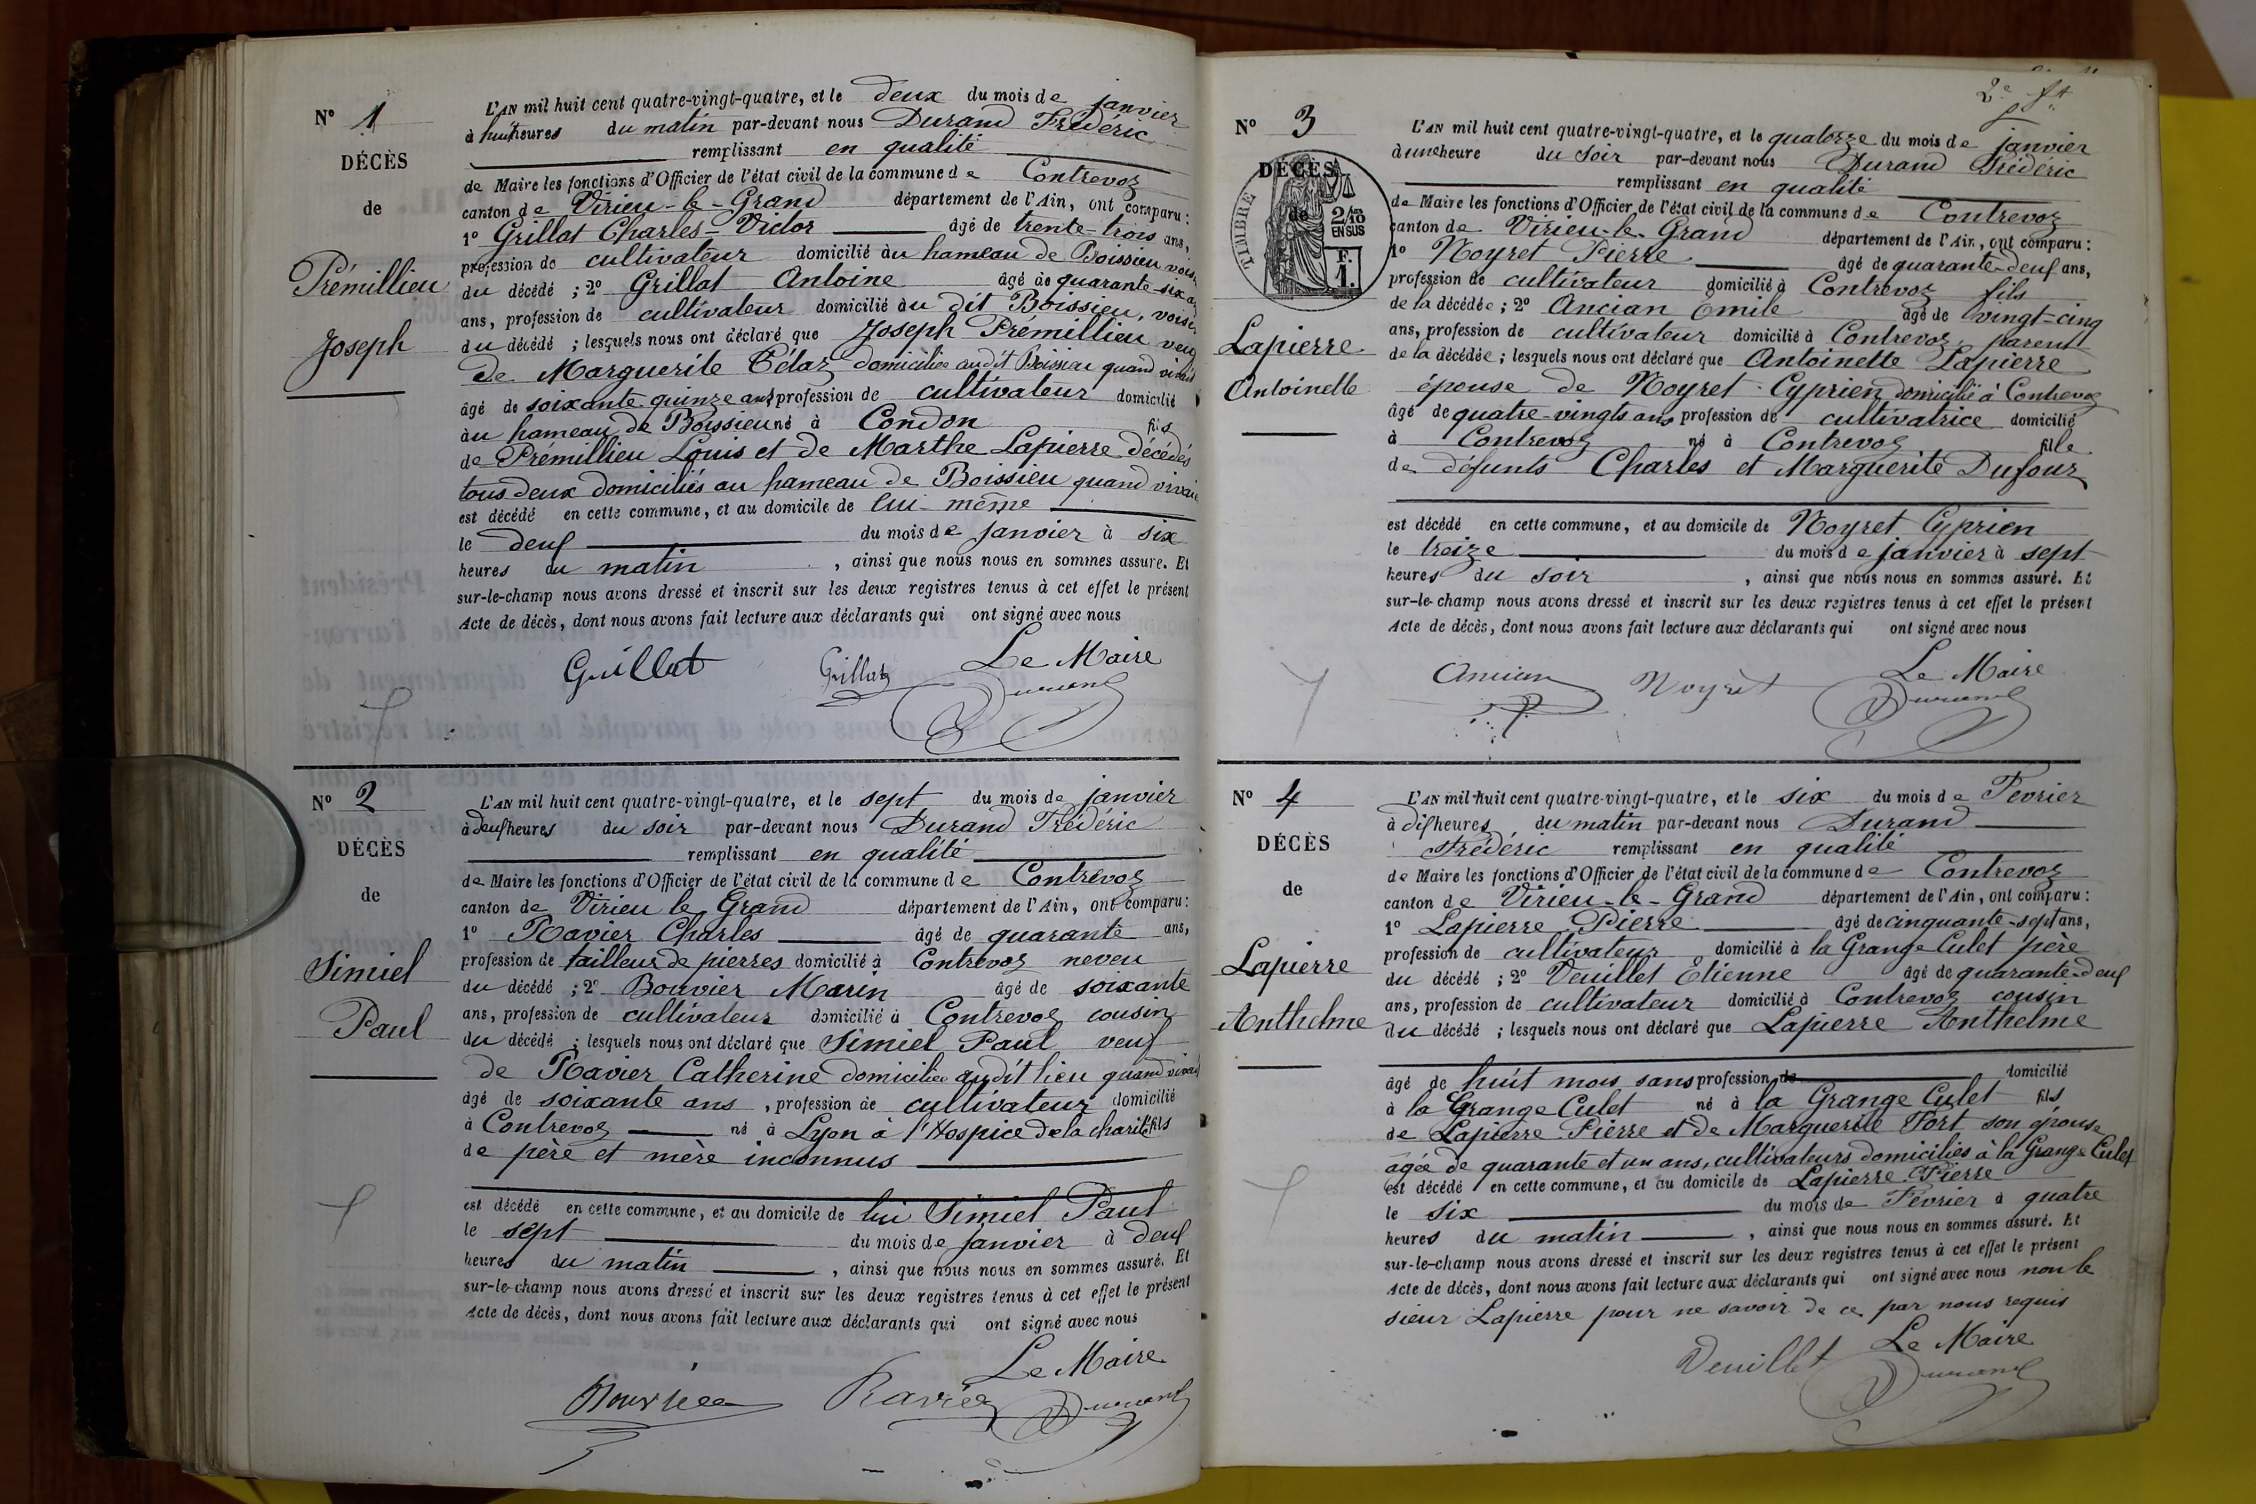 N° 1
DÉCÈS
de
Prémillieu
Joseph
L'AN mil huit cent quatre-vingt-quatre, et le deux du mois de janvier
à huit heures du matin par-devant nous Durand Frédéric
remplissant en qualité
de Maire les fonctions d'Officier de l'état civil de la commune de Contrevoz
canton de Virieu-le-Grand département de l'Ain, ont comparu :
1° Grillat Charles-Victor âgé de trente-trois ans,
profession de cultivateur domicilié au hameau de Boissieu voisin
du décédé ; 2° Grillat Antoine âgé de quarante six
ans, profession de cultivateur domicilié au dit Boissieu, voisin
du décédé ; lesquels nous ont déclaré que Joseph Prémillieu veuf
de Marguerite Télaz domiciliée audit Boissieu quand vivait
âgé de soixante quinze ans profession de cultivateur domicilié
au hameau de Boissieu né à Condon fils
de Prémillieu Louis et de Marthe Lapierre décédés
tous deux domiciliés au hameau de Boissieu quand vivaient
est décédé en cette commune, et au domicile de lui-même
le deux du mois de janvier à six
heures du matin , ainsi que nous nous en sommes assuré. Et
sur-le-champ nous avons dressé et inscrit sur les deux registres tenus à cet effet le présent
Acte de décès, dont nous avons fait lecture aux déclarants qui ont signé avec nous
Grillat Grillat Le Maire
Durand
N° 2
DÉCÈS
de
Simiel
Paul
L'AN mil huit cent quatre-vingt-quatre, et le sept du mois de janvier
à deux heures du soir par-devant nous Durand Frédéric
remplissant en qualité
de Maire les fonctions d'Officier de l'état civil de la commune de Contrevoz
canton de Virieu le Grand département de l'Ain, ont comparu :
1° Ravier Charles âgé de quarante ans,
profession de tailleur de pierres domicilié à Contrevoz neveu
du décédé ; 2° Bouvier Marin âgé de soixante
ans, profession de cultivateur domicilié à Contrevoz cousin
du décédé ; lesquels nous ont déclaré que Simiel Paul veuf
de Ravier Catherine domiciliée audit lieu quand vivait
âgé de soixante ans , profession de cultivateur domicilié
à Contrevoz né à Lyon à l'Hospice de la charité fils
de père et mère inconnus
est décédé en cette commune, et au domicile de lui Simiel Paul
le sept du mois de janvier à deux
heures du matin , ainsi que nous nous en sommes assuré. Et
sur-le-champ nous avons dressé et inscrit sur les deux registres tenus à cet effet le présent
Acte de décès, dont nous avons fait lecture aux déclarants qui ont signé avec nous
Le Maire
Bouvier Ravier Durand
2e
N° 3
DÉCÈS
de
TIMBRE
2/10
EN SUS
F.
1.
Lapierre
Antoinette
L'AN mil huit cent quatre-vingt-quatre, et le quatorze du mois de janvier
à une heure du soir par-devant nous Durand Frédéric
remplissant en qualité
de Maire les fonctions d'Officier de l'état civil de la commune de Contrevoz
canton de Virieu-le-Grand département de l'Ain, ont comparu :
1° Noyret Pierre âgé de quarante-deux ans,
profession de cultivateur domicilié à Contrevoz fils
de la décédée ; 2° Ancian Emile âgé de vingt-cinq
ans, profession de cultivateur domicilié à Contrevoz parent
de la décédée ; lesquels nous ont déclaré que Antoinette Lapierre
épouse de Noyret Cyprien domicilié à Contrevoz
âgé de quatre-vingts ans profession de cultivatrice domicilié
à Contrevoz né à Contrevoz fille
de défunts Charles et Marguerite Dufour
est décédé en cette commune, et au domicile de Noyret Cyprien
le treize du mois de janvier à sept
heures du soir , ainsi que nous nous en sommes assuré. Et
sur-le-champ nous avons dressé et inscrit sur les deux registres tenus à cet effet le présent
Acte de décès, dont nous avons fait lecture aux déclarants qui ont signé avec nous
Ancian Noyret Le Maire
Durand
N° 4
DÉCÈS
de
Lapierre
Anthelme
L'AN mil huit cent quatre-vingt-quatre, et le six du mois de Fevrier
à dix heures du matin par-devant nous Durand
Frédéric remplissant en qualité
de Maire les fonctions d'Officier de l'état civil de la commune de Contrevoz
canton de Virieu-le-Grand département de l'Ain, ont comparu :
1° Lapierre Pierre âgé de cinquante-sept ans,
profession de cultivateur domicilié à la Grange Culet père
du décédé ; 2° Veuillet Etienne âgé de quarante-deux
ans, profession de cultivateur domicilié à Contrevoz cousin
du décédé ; lesquels nous ont déclaré que Lapierre Anthelme
âgé de huit mois sans profession de domicilié
à la Grange Culet né à la Grange Culet fils
de Lapierre Pierre et de Marguerite Fort son épouse
agée de quarante et un ans, cultivateurs domiciliés à la Grange Culet
est décédé en cette commune, et au domicile de Lapierre Pierre
le six du mois de Février à quatre
heures du matin , ainsi que nous nous en sommes assuré. Et
sur-le-champ nous avons dressé et inscrit sur les deux registres tenus à cet effet le présent
Acte de décès, dont nous avons fait lecture aux déclarants qui ont signé avec nous non le
sieur Lapierre pour ne savoir de ce par nous requis
Veuillet Le Maire
Durand